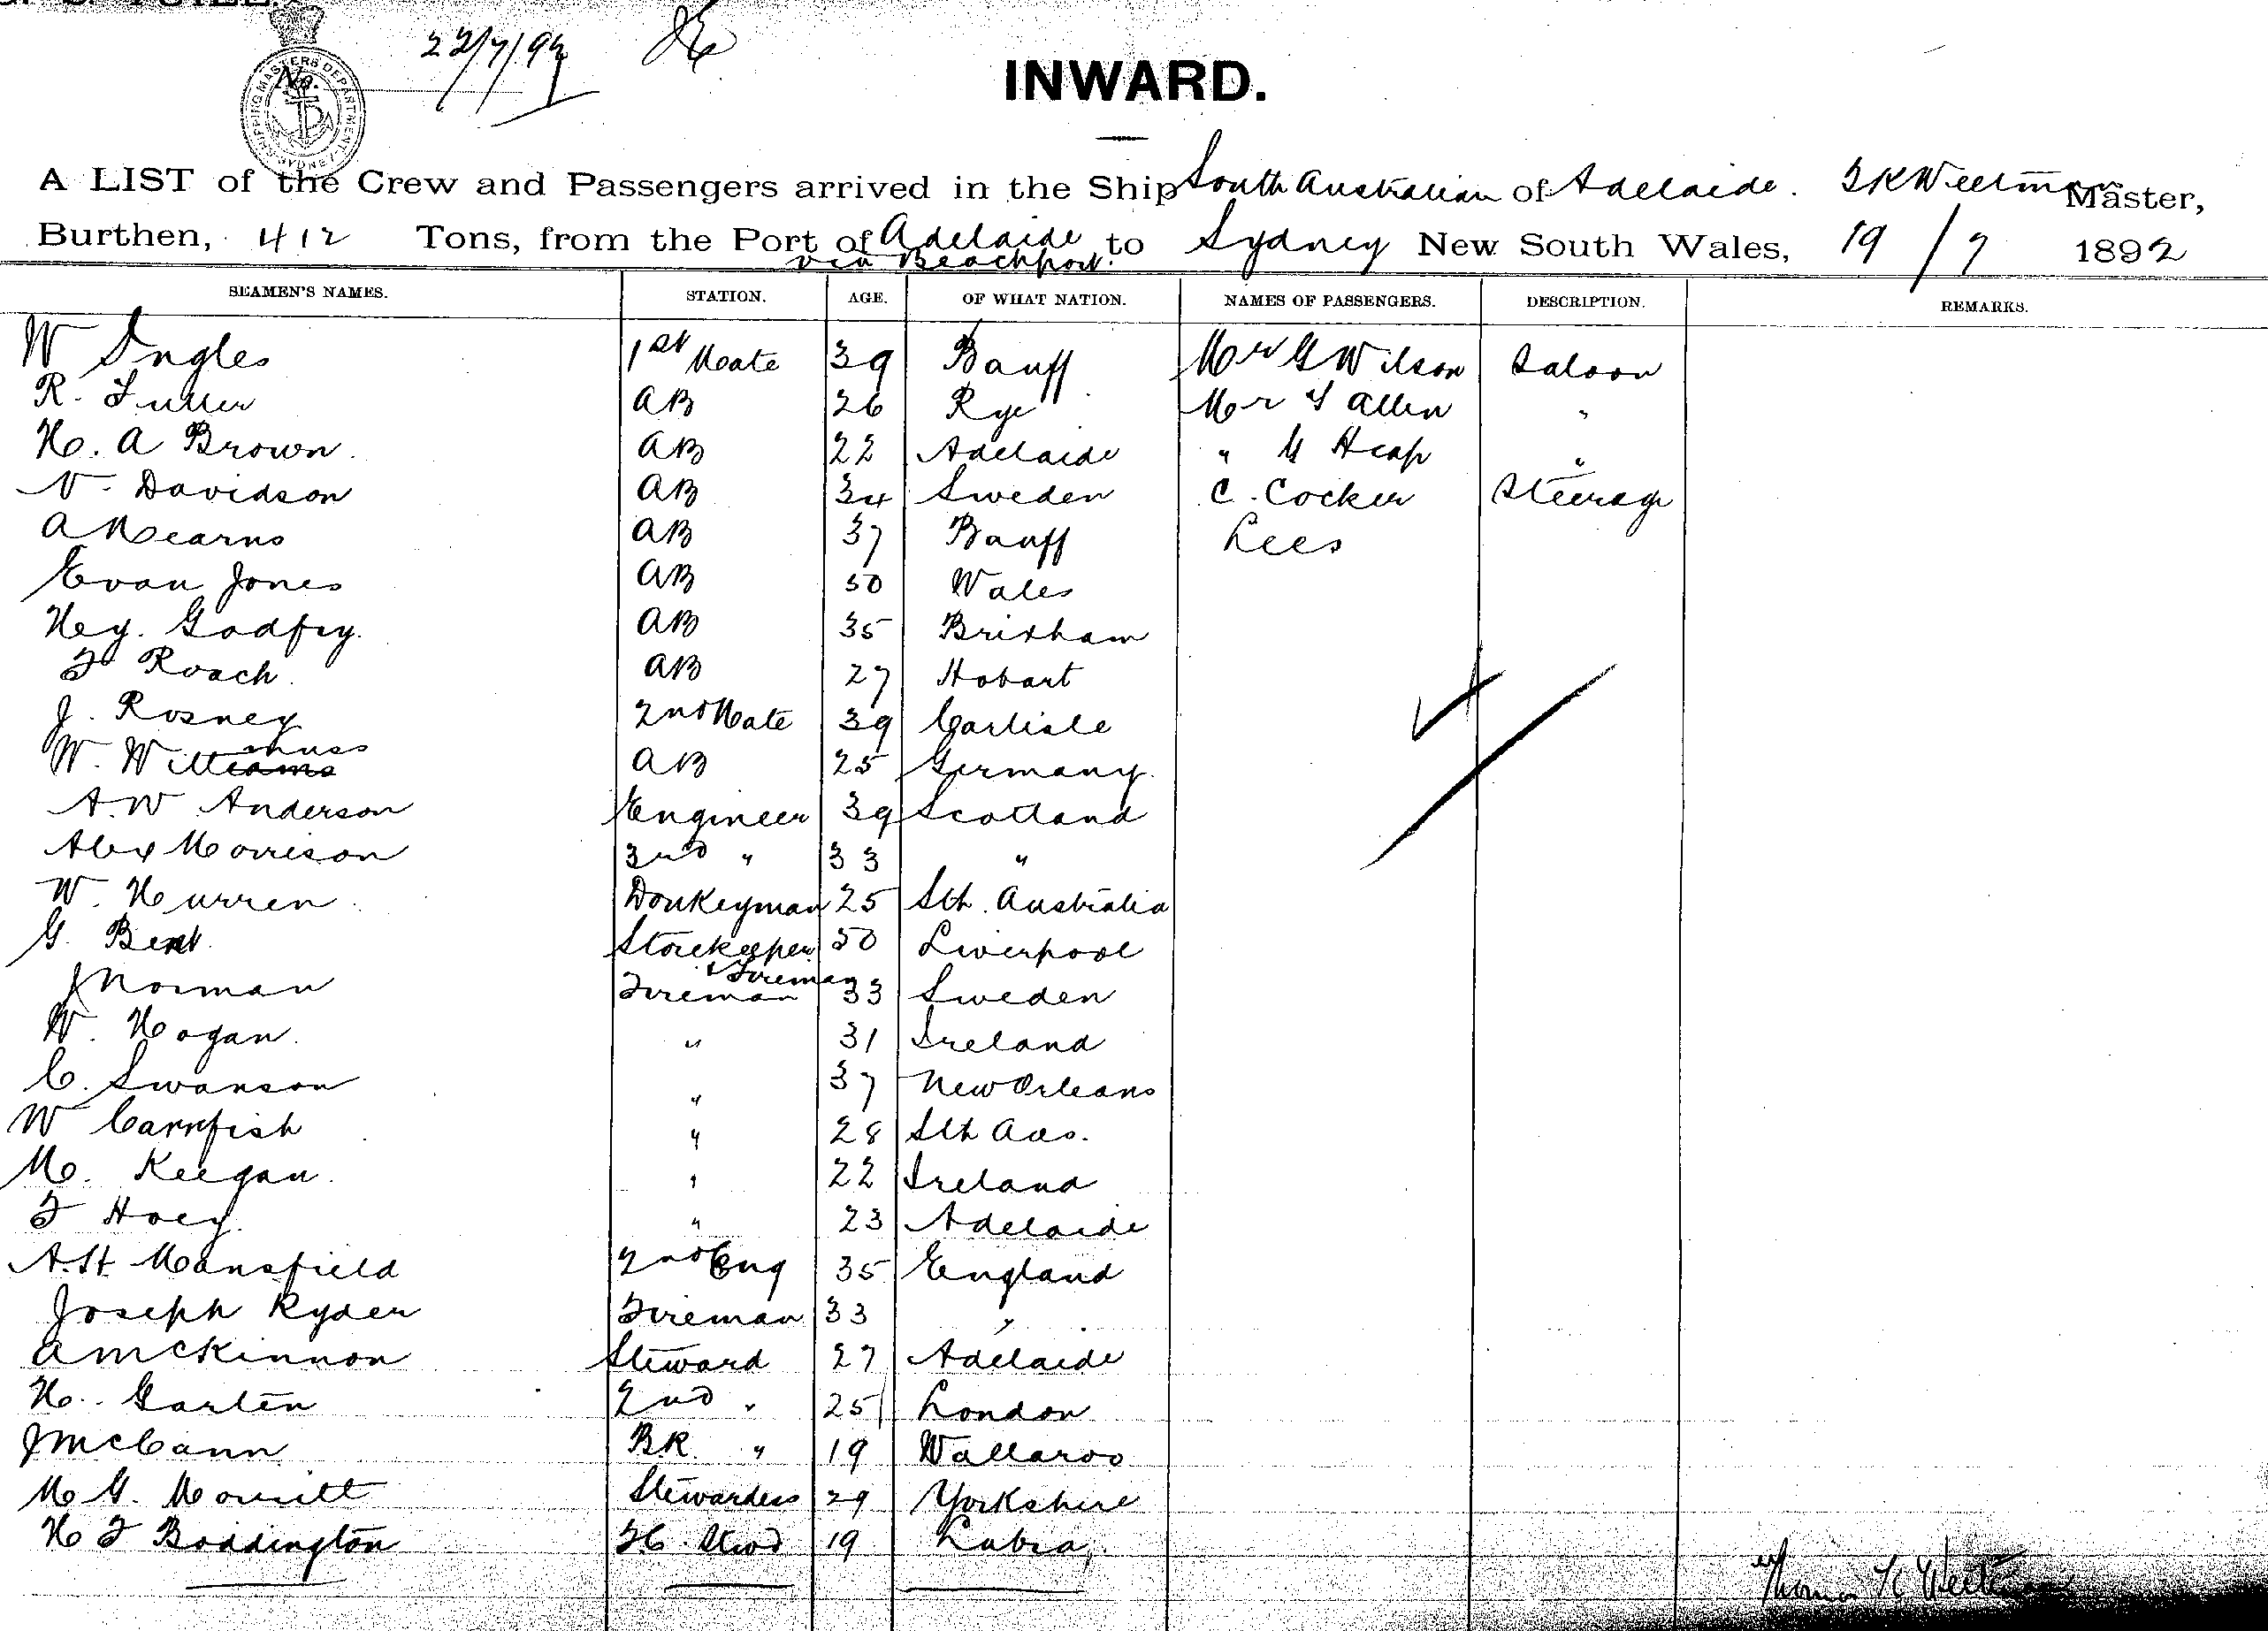 22/7/92
INWARD.
SHIPPING MASTERS DEPARTMENT SYDNEY
No.
A LIST of the Crew and Passengers arrived in the Ship South Australian of Adelaide. Master,
Burthen, 412 Tons, from the Port of Adelaide to Sydney New South Wales, 19/7 1892
via Beachport
SEAMEN'S NAMES. STATION. AGE. OF WHAT NATION. NAMES OF PASSENGERS. DESCRIPTION. REMARKS.
W Ingles 1st Mate 39 Banff Mr G Wilson Saloon
R. Fuller AB 26 Rye Mr Allen "
H. A Brown. AB 22 Adelaide " G Heap "
N. Davidson AB 34 Sweden C. Cocker Steerage
A Mearns AB 37 Banff Lees
Evan Jones AB 50 Wales
Hey. Godfry. AB 35 Brixham
F Roach. AB 27 Hobart
J. Rosney 2nd Mate 39 Carlisle
W. Williams AB 25 Germany.
A.W Anderson Engineer 39 Scotland
Alex Morrison 3rd " 33 "
W. Hurren Donkeyman 25 Sth. Australia
G. Bent. Storekeeper 50 Liverpool
& Fireman
J Norman Fireman 33 Sweden
W. Hogan. " 31 Ireland
C. Swanson " 37 New Orleans
W Carrfish " 28 Sth Aus.
M. Keegan. " 22 Ireland
F Hoey. " 23 Adelaide
A.H Mansfield 2nd Eng 35 England
Joseph Ryder Fireman 33 "
A McKinnon Steward 27 Adelaide
H. Garten 2nd " 25 London
J McCann BR " 19 Wallaroo
M G. Stewardess 29 Yorkshire
H F Boddington FC. Stwd 19
Thomas K